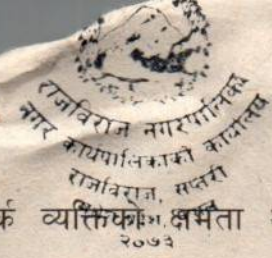 राजविराज नगरपालिका
नगर कार्यपालिकाको कार्यालय
राजविराज, सप्तरी
र्क व्यक्तिको क्षमता
२०७३